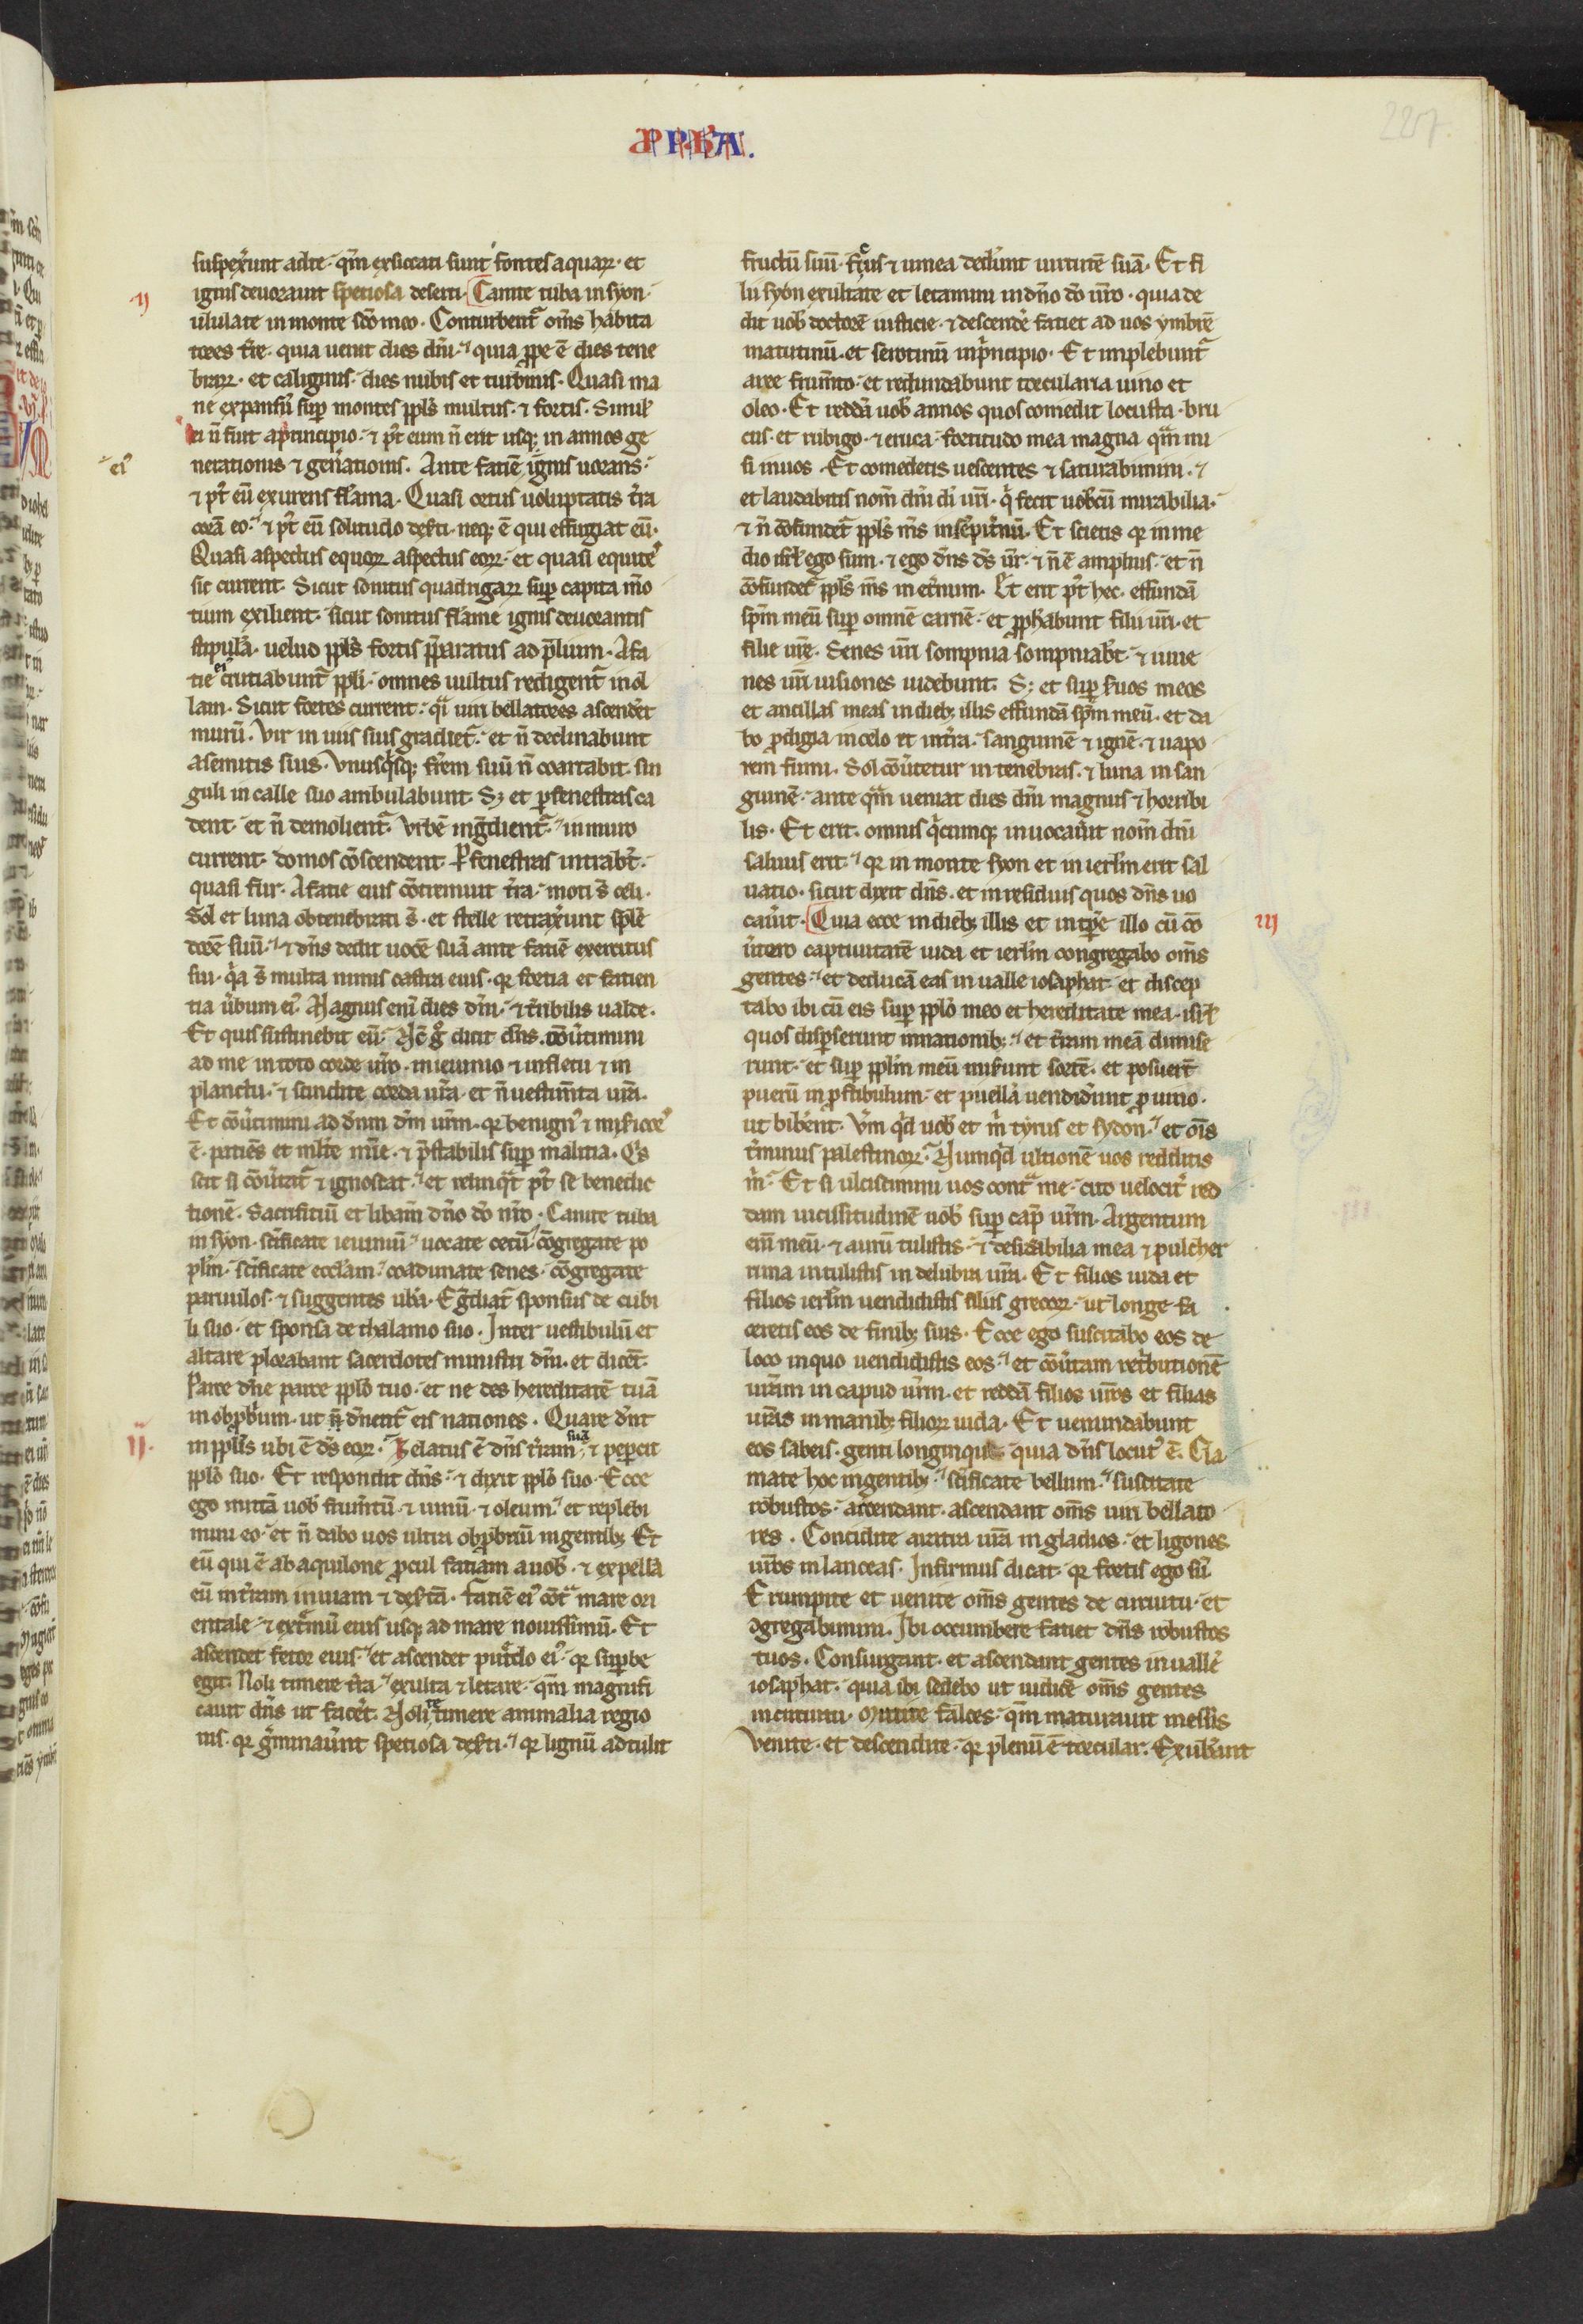 227.
suspexerunt ad te· qm̄ exsiccati sunt fontes aquaꝝ· et
ignis deuorauit speciosa deserti· Canite tuba in syon·
ululate in monte sc̄o meo· Conturbent᷑ om̄s habita
tores tr̄e· quia uenit dies dn̄i· quia ꝓpe ē dies tene
braꝝ· et caliginis· dies nubis et turbinis· Quasi ma
ne expansū sup montes ppl̄s multus· ⁊ fortis· Simil̄
ei n̄ fuit a principio· ⁊ pt̄ eum n̄ erit usqꝫ in annos ge
nerationis ⁊ gen̄ationis· Ante faciē ignis uorans·
ei᷒
⁊ pt̄ eū exurens fla̅ma· Quasi ortus uoluptatis tr̄a
corā eo· ⁊ pt̄ eū solitudo deẜti· neqꝫ ē qui effugiat eū·
Quasi aspectus equoꝝ aspectus eoꝝ· et quasi equites
sic current· Sicut sonitus quadrigaꝝ sup capita mō
tium exilient· sicut sonitus flāme ignis deuorantis
stipulā· uelud ppl̄s fortis p̄paratus ad p̄lium· A fa
cie ei᷒ cruciabunt᷑ ppl̄i· omnes uultus redigent᷑ in ol
lam· Sicut fortes current· qͣi uiri bellatores ascendēt
murū· Vir in uiis suis gradiet᷑· et n̄ declinabunt
a semitis suis· Vnusqͥsqꝫ fr̄em suū n̄ coartabit· sin
guli in calle suo ambulabunt· Sꝫ et ꝑ fenestras ca
dent· et n̄ demolient᷑· Vrbē ing̃dient᷑· in muro
current· domos cōscendent· ꝑ fenestras intrabt̄·
quasi fur· A facie eius cōtremuit tr̄a· moti s̄ celi·
Sol et luna obtenebrati s̄· et stelle retrax̄unt splē
dorē suū· ⁊ dn̄s dedit uocē suā ante faciē exercitus
sui· qͥa s̄ multa nimis castra eius· qꝛ fortia et facien
tia u̅bum ei᷒· Magnus eni̅ dies dn̄i· ⁊ tr̄ibilis ualde·
Et quis sustinebit eū· Nc̄ gͦ dicit dn̄s· cōu̅timini
ad me in toto corde ur̄o· in ieiunio ⁊ in fletu ⁊ in
planctu· ⁊ scindite corda ur̄a· et n̄ uestim̄ta ur̄a·
Et cōu̅timini ad dn̄m dm̄ ur̄m· qꝛ benign᷒ ⁊ mis̄icors᷒
ē· patiēs et mlt̄e mīe· ⁊ p̄stabilis sup malicia· Qͥs
scit si cōu̅tat᷑ ⁊ ignoscat· et relinqͣt pt̄ se benedic
tionē· Sacrificiū et libam̄ dn̄o dō nr̄o· Canite tuba
in syon· sc̄ificate ieiuniū· uocate cetū· cōgregate po
pl̄m· sc̄ificate eccl̄am· coadunate senes· cōgregate
paruulos· ⁊ suggentes ub̄a· Eg̃diat᷑ sponsus de cubi
li suo· et sponsa de thalamo suo· Inter uestibulū et
altare plorabant sacerdotes ministri dn̄i· et dicēt·
Parce dn̄e parce ppl̄o tuo· et ne des hereditatē tuā
in obprb̄um· ut n̄ dn̄ent᷑ eis nationes· Quare dn̄t
in ppl̄is ubi ē ds̄ eoꝝ· Zelatus ē dn̄s tr̄am suā ⁊ pepcit
ppl̄o suo· Et respondit dn̄s· ⁊ dixit ppl̄o suo· Ecce
ego mittā uob̄ frum̄tū· ⁊ uinū· ⁊ oleum· et replebi
mini eo· et n̄ dabo uos ultra obprobriū in gentibꝫ Et
eū qui ē ab aquilone ꝓcul faciam a uob̄· ⁊ expellā
eū in tr̄am inuiam ⁊ deẜtā· faciē ei᷒ cōtͣ mare ori
entale· ⁊ extͤmū eius usqꝫ ad mare nouissimū· Et
ascendet fetor eius· et ascendet putͤdo ei᷒· qꝛ supbe
egit· Noli timere tr̄a· exulta ⁊ letare· qm̄ magnifi
cauit dn̄s ut facer̄t· Nolite timere animalia regio
nis· qꝛ gͤminau̅nt speciosa deẜti· qꝛ lignū adtulit
fructū suū· ficus ⁊ uinea dedr̄unt uirtutē suā· Et fi
lii syon exultate et letamini in dn̄o dō ur̄o· quia de
dit uob̄ doctorē iusticie· ⁊ descendr̄e faciet ad uos ymbrē
matutinū· et serotinū in pͥncipio· Et implebunt᷑
aree frum̄to· et redundabunt torcularia uino et
oleo· Et reddā uob̄ annos quos comedit locusta· bru
cus· et rubigo· ⁊ eruca· fortitudo mea magna qͣm mi
si in uos· Et comedetis uescentes ⁊ saturabimini· ⁊
et laudabitis nom̄ dn̄i dī ur̄i· qͥ fecit uobcū mirabilia·
⁊ n̄ cōfundet᷑ ppl̄s m̄s in sēpit̄nū· Et scietis qꝛ in me
dio isrl̄ ego sum· ⁊ ego dn̄s ds̄ ur̄· ⁊ n̄ ē amplius· et n̄
cōfundet᷑ ppl̄s m̄s in et̄num· Et erit pt̄ hec· effundā
spm̄ meū sup omnē carnē· et ꝓphabunt filii ur̄i· et
filie ur̄e· Senes ur̄i sompnia sompniabt̄· ⁊ iuue
nes ur̄i uisiones uidebunt· Sꝫ et sup ẜuos meos
et ancillas meas in diebꝫ illis effundā spm̄ meū· et da
bo ꝓdigia in celo et in tr̄a· sanguinē ⁊ ignē· ⁊ uapo
rem fumi· Sol cōu̅tetur in tenebras· ⁊ luna in san
guinē· ante qͣm ueniat dies dn̄i magnus ⁊ horribi
lis· Et erit· omnis qͥcumqꝫ inuocau̅it nom̄ dn̄i
saluus erit· qꝛ in monte syon et in ierlm̄ erit sal
uatio· sicut dixit dn̄s· et in residuis quos dn̄s uo
cau̅it· Quia ecce in diebꝫ illis et in tp̄re illo cū cō
u̅tero captiuitatē iuda et ierlm̄ congregabo om̄s
gentes· et deducā eas in ualle iosaphat· et discep
tabo ibi cū eis sup ppl̄o meo et hereditate mea· isrl̄
quos dispserunt in nationibꝫ· et tr̄am meā diuise
runt· et sup ppl̄m meū miẜunt sortē· et posuert̄
puerū in ꝓstibulum· et puellā uendidr̄unt ꝓ uino·
ut biber̄ent· Vm̄ qͥd uob̄ et m̄ tyrus et sydon· et om̄is
tr̄minus palestinoꝝ· Numqͥd ultionē uos redditis
m̄· Et si ulciscimini uos contͣ me· cito uelocit̄ red
dam uicissitudinē uob̄ sup cap̄ ur̄m· Argentum
eni̅ meū· ⁊ aurū tulistis· ⁊ desid̄abilia mea ⁊ pulcher
rima intulistis in delubra ur̄a· Et filios iuda et
filios ierlm̄ uendidistis filiis grecoꝝ· ut longe fa
ceretis eos de finibꝫ suis· Ecce ego suscitabo eos de
loco in quo uendidistis eos· et cōu̅tam retͥbutionē
ur̄am in capud ur̄m· et reddā filios ur̄os et filias
ur̄as in manibꝫ filioꝝ iuda· Et uenundabunt
eos sabeis· genti longinque· quia dn̄s locut᷒ ē· Cla
mate hoc in gentibꝫ· sc̄ificate bellum· suscitate
robustos· accendant· ascendant om̄s uiri bellato
res· Concidite aratra ur̄a in gladios· et ligones
ur̄os in lanceas· Infirmus dicat· qꝛ fortis ego sū
Erumpite et uenite om̄s gentes de circuitu· et
ꝯgregabimini· Ibi occumbere faciet dn̄s robustos
tuos· Consurgant· et ascendant gentes in uallē
iosaphat· quia ibi sedebo ut iudicē om̄s gentes
in circuitu· Mittite falces· qm̄ maturauit messis
Venite· et descendite· qꝛ plenū ē torcular· Exub̄ant
ii
ii·
iii